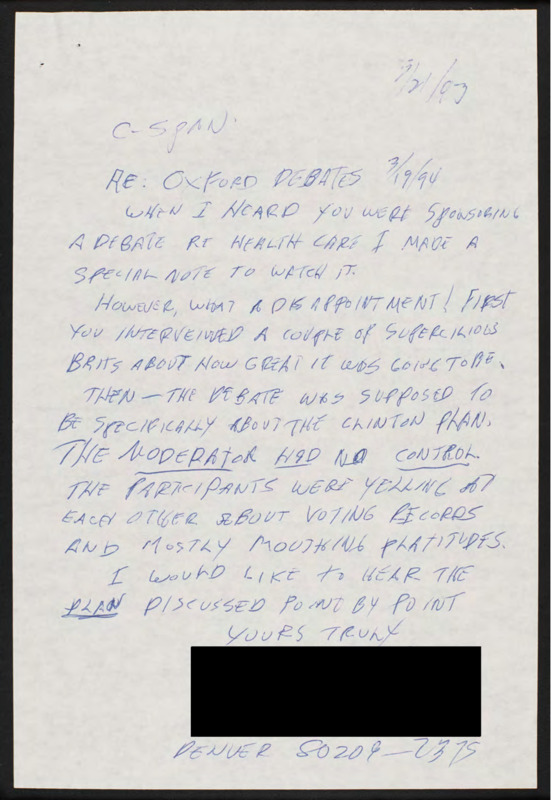 3/21/93
C-SPAN.
RE: OXFORD DEBATES 3/19/94
WHEN I HEARD YOU WERE SPONSORING
A DEBATE RE HEALTH CARE I MADE A
SPECIAL NOTE TO WATCH IT.
HOWEVER, WHAT A DISAPPOINTMENT! FIRST
YOU INTERVEIWED A COUPLE OF SUPERCILIOUS
BRITS ABOUT HOW GREAT IT WAS GOING TO BE.
THEN — THE DEBATE WAS SUPPOSED TO
BE SPECIFICALLY ABOUT THE CLINTON PLAN.
THE MODERATOR HAD NO CONTROL
THE PARTICIPANTS WERE YELLING AT
EACH OTHER ABOUT VOTING RECORDS
AND MOSTLY MOUTHING PLATITUDES.
I WOULD LIKE TO HEAR THE
PLAN DISCUSSED POINT BY POINT
YOURS TRULY
DENVER 80209-2375